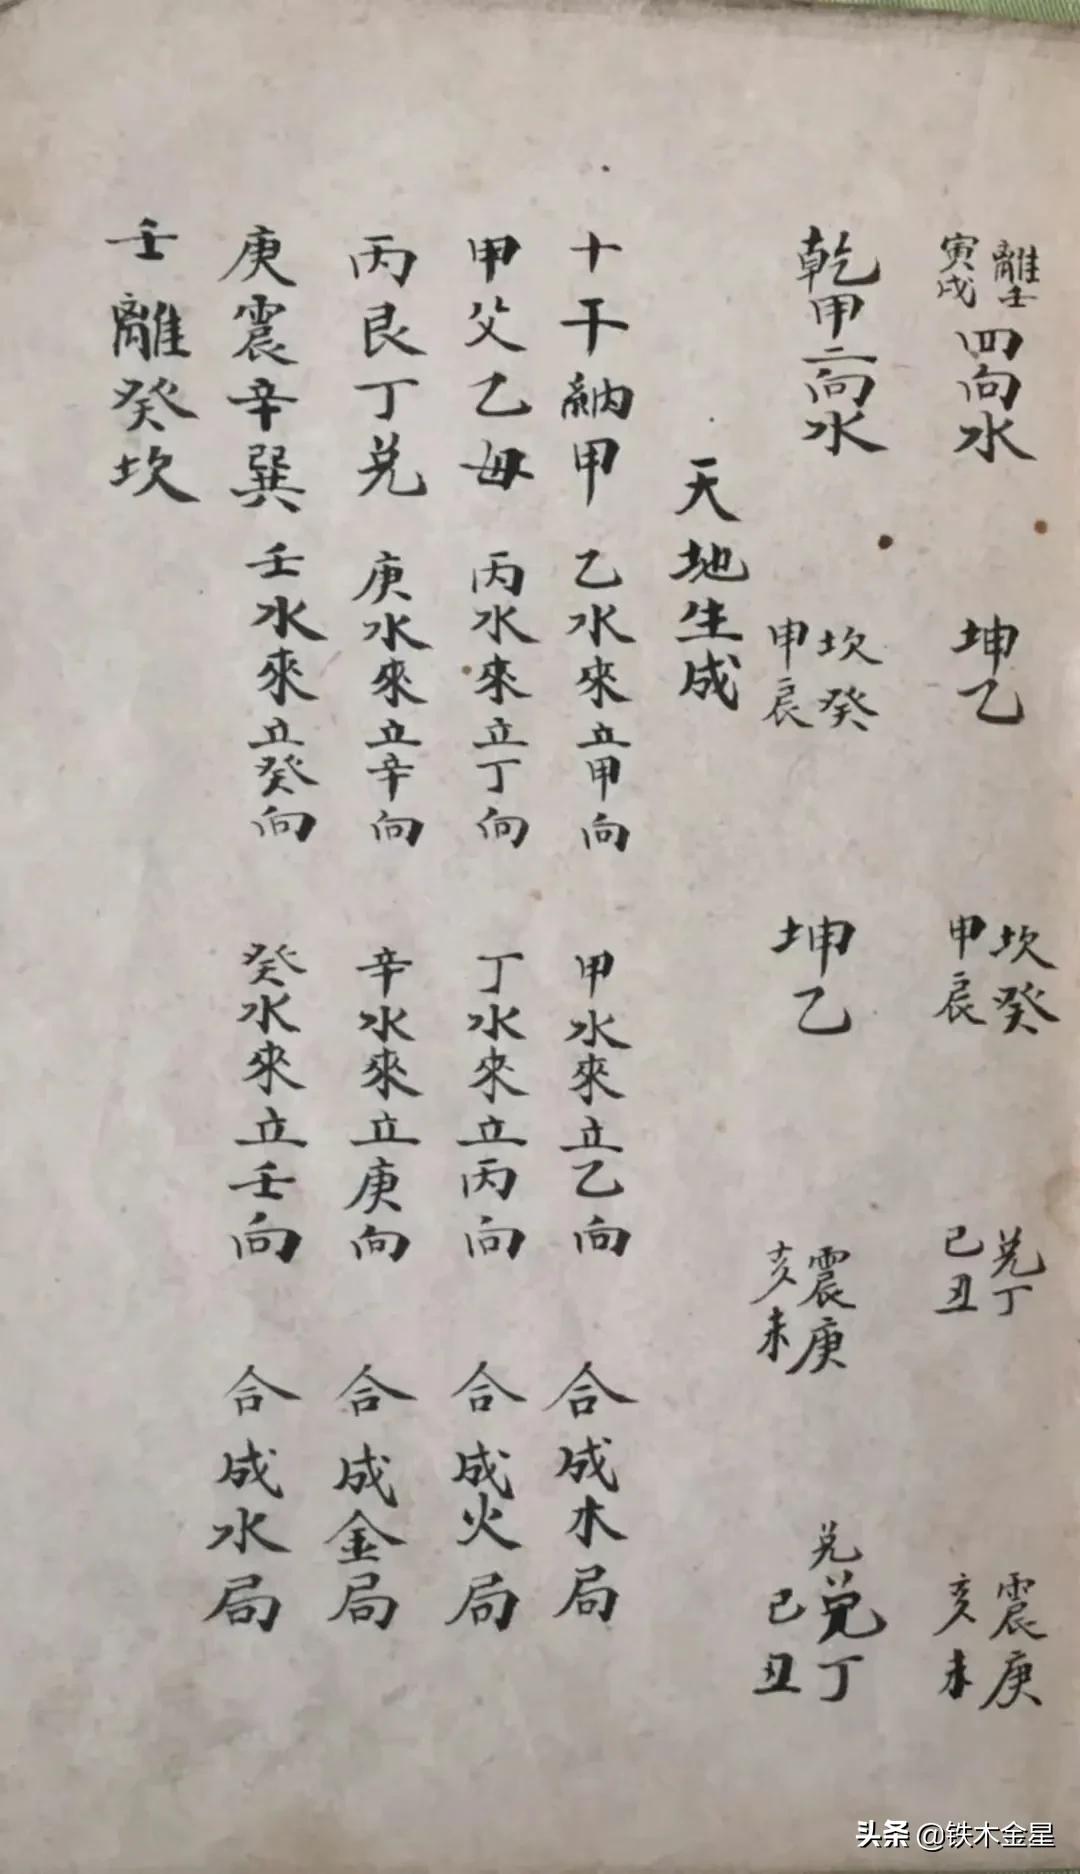 離壬寅戌四向水 坤乙 坎癸申辰 兑丁巳丑 震庚亥未
乾甲二向水 坎癸申辰 坤乙 震庚亥未 兑兑丁巳丑
天地生成
十干納甲 乙水來立甲向 甲水來立乙向 合成木局
甲父乙母 丙水來立丁向 丁水來立丙向 合成火局
丙艮丁兑 庚水來立辛向 辛水來立庚向 合成金局
庚震辛巽 壬水來立癸向 癸水來立壬向 合成水局
壬離癸坎
头条 @铁木金星